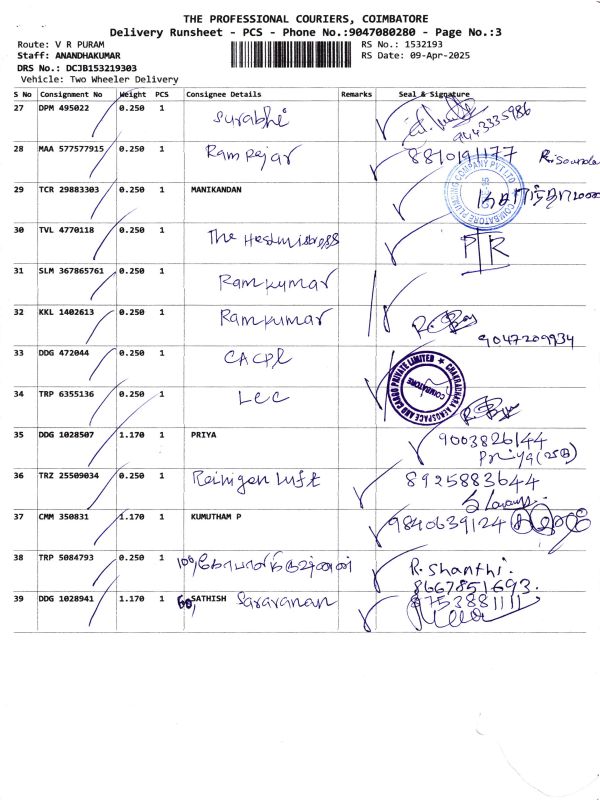 THE PROFESSIONAL COURIERS, COIMBATORE
Delivery Runsheet - PCS - Phone No.:9047080280 - Page No.:3
Route: V R PURAM
Staff: ANANDHAKUMAR
DRS No.: DCJB153219303
Vehicle: Two Wheeler Delivery
RS No.: 1532193
RS Date: 09-Apr-2025
S No Consignment No Weight PCS Consignee Details Remarks Seal & Signature
27 DPM 495022 0.250 1 Surabhi
9443335986
28 MAA 577577915 0.250 1 Ram Rajar 8810191177
29 TCR 29883303 0.250 1 MANIKANDAN
COIMBATORE PLUMBING COMPANY PVT LTD
30 TVL 4770118 0.250 1 The Headmistress
31 SLM 367865761 0.250 1 Ramkumar
32 KKL 1402613 0.250 1 Ramkumar
9047209934
33 DDG 472044 0.250 1 CACPL
CHAKRADHARA AEROSPACE AND CARGO PRIVATE LIMITED
COIMBATORE
34 TRP 6355136 0.250 1 LCC
35 DDG 1028507 1.170 1 PRIYA 9003826144
Priya
36 TRZ 25509034 0.250 1 8925883644
37 CMM 350831 1.170 1 KUMUTHAM P 9840639124
38 TRP 5084793 0.250 1 R. Shanthi.
8667851693.
39 DDG 1028941 1.170 1 SATHISH Saravanan